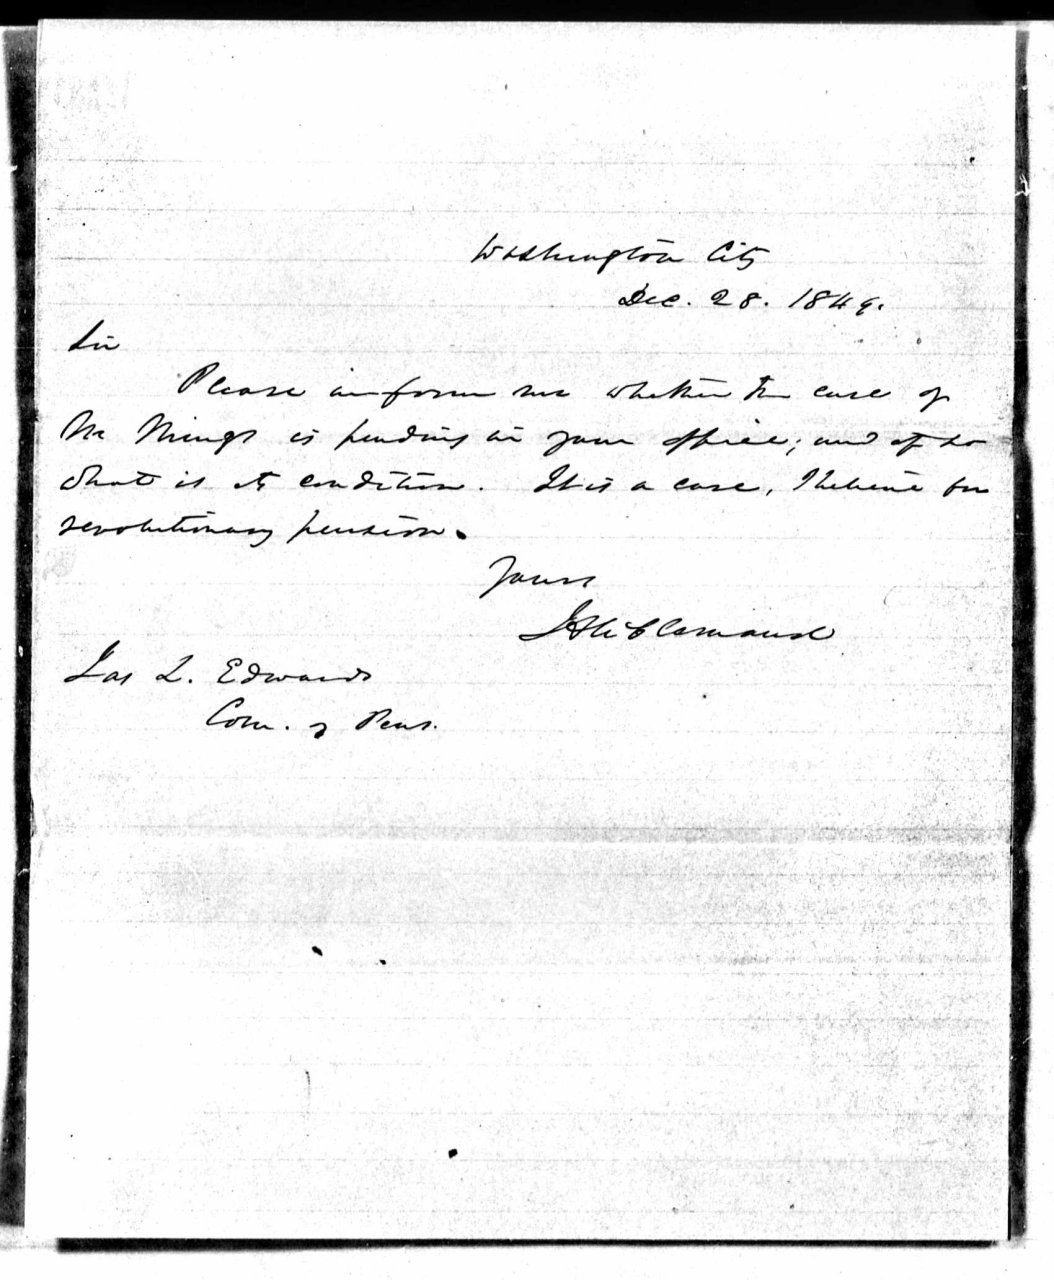 Washington City
Dec. 28. 1849.
Sir
Please inform me whether the case of
is pending in your office; and if so
what is its condition. It is a case, I believe for
revolutionary pension.
Yours
J A McClernand
Jas L. Edwards
Com. of Pens.